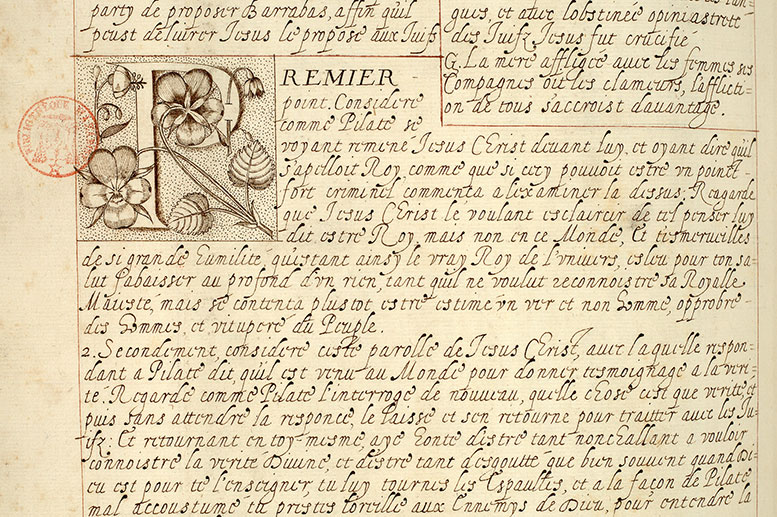 party de proposer Barrabas, affin quil
peust deliurer Jesus le propose aux Juifs
gues, et auec lobstinée opiniastreté
des Juifz, Jesus fut crucifié
G. La mere affligée auec les femmes ses
Compagnes oit les clameurs, lafflicti-
on de tous saccroist dauantage.
PREMIER
point. Considere
comme Pilate se
voyant remené Jesus Christ deuant luy, et oyant dire quil
sapelloit Roy, comme que si cecy pouuoit estre vn point
fort criminel commenta a lexaminer la dessus; Regarde
que Jesus Christ le voulant esclaircir de tel penser luy
dit estre Roy, mais non en ce Monde, Et tesmerueilles
de si grande humilité, quiestant ainsy le vray Roy de lvniuers, esleu pour ton sa-
lut sabaisser au profond dvn rien, tant quil ne voulut reconnoistre sa Royalle
Maiesté, mais se contenta plustot estre estimé vn ver et non homme, opprobre
des hommes, et vitupere du Peuple.
2. Secondement, considere ceste parolle de Jesus Christ, auec laquelle respon-
dant a Pilate dit, quil est venu au Monde pour donner tesmoignage a la veri-
té. Regarde comme Pilate l'interroge de nouueau, quelle chose cest que verité, et
puis sans attendre la responce, le laisse et sen retourne pour traitter auec les Ju-
ifz: Et retournant en toy-mesme, aye honte destre tant nonchallant a vouloir
connoistre la verité Diuine, et destre tant desgoutté que bien souuent quand Di-
eu est pour te l'enseigner, tu luy tournes les Espaulles, et a la façon de Pilate
mal accoustumé tu prestes loreille aux Ennemys de Dieu, pour entendre la